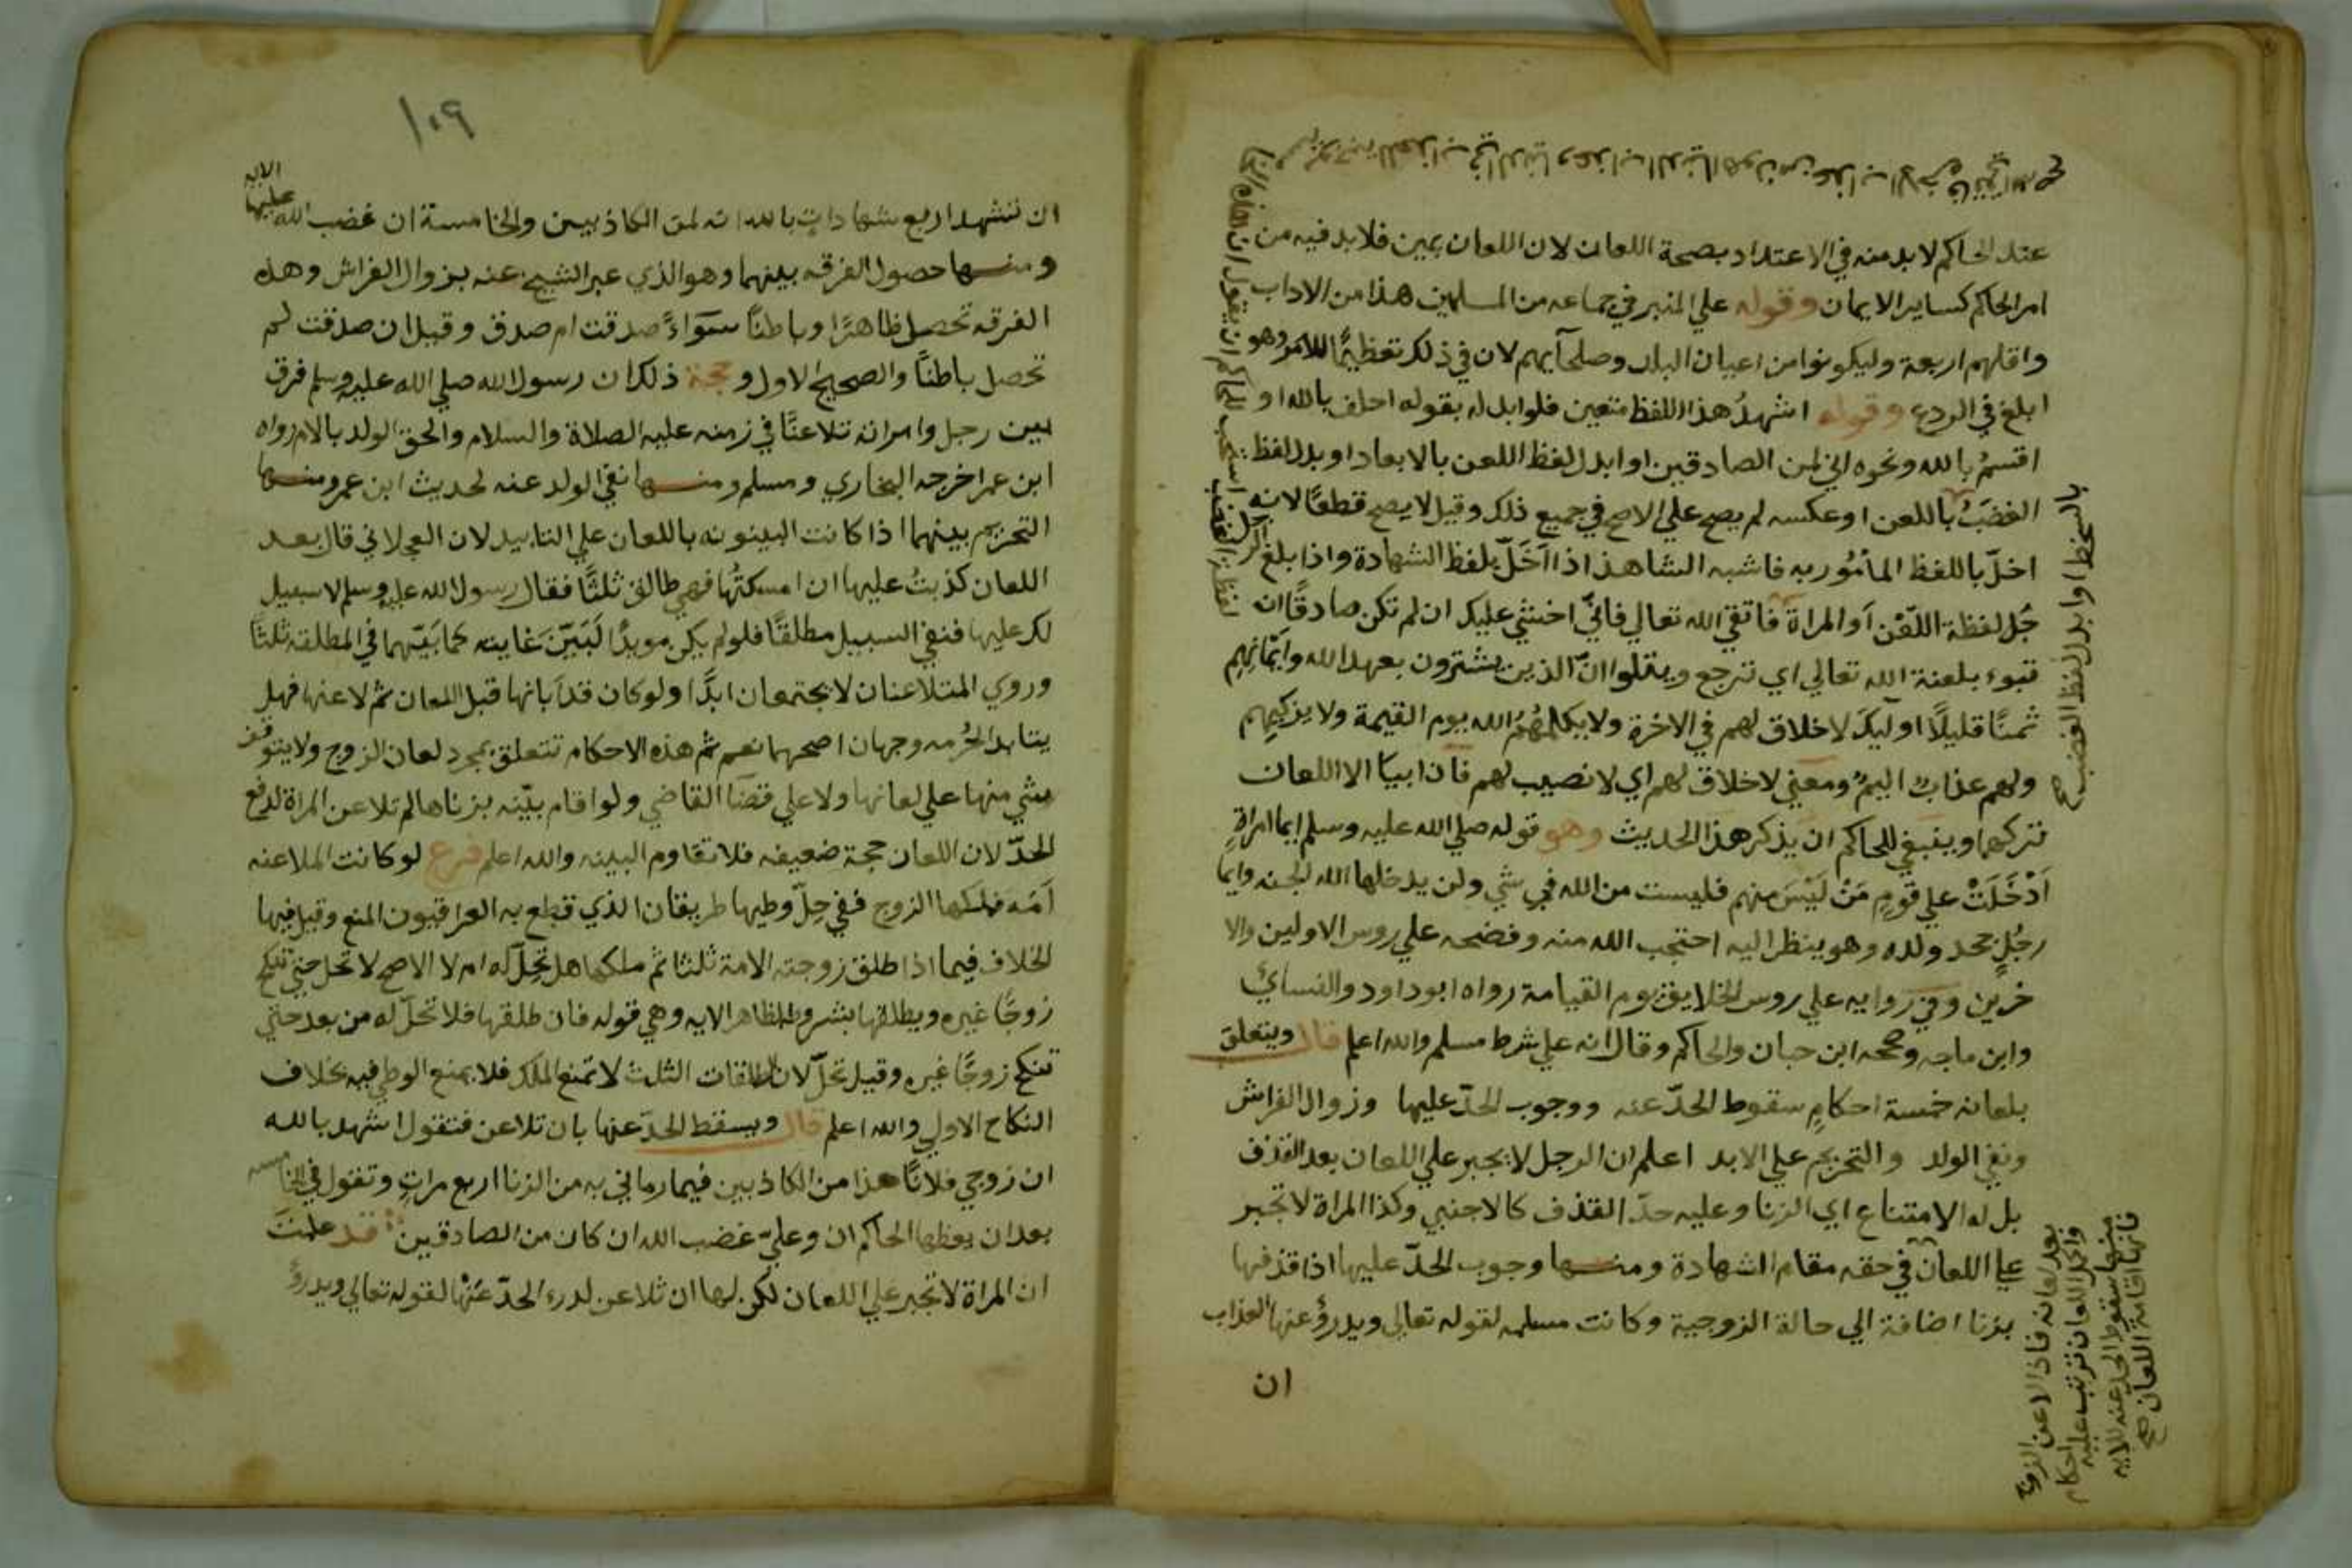 عند الحاكم لا بد منه في الاعتداد بصحة اللعان لان اللعان يمين فلا بد فيه من
امر الحاكم كساير الايمان وقوله علي المنبر في جماعه من المسلمين هذا من الاداب
واقلهم اربعة وليكونوا من اعيان البلد وصلحآيهم لان في ذلك تعظيمًا للامر وهو
ابلغ في الردع وقوله اشهدُ هذا اللفظ متعين فلو ابدله بقوله احلف بالله او
اقسمُ بالله ونحوه اني لمن الصادقين او ابدل لفظ اللعن بالابعاد او بدل لفظ
الغضَبُ باللعن او عكسه لم يصح علي الاصح في جميع ذلك وقيل لا يصح قطعًا لانه
اخلّ باللفظ المأمُور به فاشبه الشاهذ اذا اَخَلّ بلفظ الشهادة واذا بلغ الر
جُل لفظة اللّعْن اَو المراة فاتقي الله تعالي فانيّ اخشي عليك ان لم تكن صادقًا ان
تبوء بلعنة الله تعالي اي ترجع ويتلوا انّ الذين يشترون بعهد الله وايمَانِهِم
ثمنًا قليلًا اوليكَ لا خلاق لهم في الاخرة ولا يكلمُهُمُ الله يوم القيمة ولا يزكيهم
ولهم عذابٌ اليمٌ ومعني لا خلاق لهم اي لا نصيب لهم فان ابيا الا اللعان
تركهما وينبغي للحاكم ان يذكر هذا الحديث وهو قوله صلي الله عليه وسلم ايما امراةٍ
اَدْخَلَتْ علي قومٍ مَنْ لَيْسَ منهم فليست من الله في شي ولن يدخلها الله الجنه وايما
رجُلٍ جحد ولده وهو ينظر اليه احتجب الله منه وفضحه علي روس الاولين والا
خرين وفي روايه علي روس الخلايق يوم القيامة رواه ابو داود والنسايُ
وابن ماجه وصححه ابن حبان والحاكم وقال انه علي شرط مسلم والله اعلم قال ويتعلق
بلعانه خمسة احكامٍ سقوط الحدّ عنه ووجوب الحدّ عليها وزوال الفراش
ونفي الولد والتحريم علي الابد اعلم ان الرجل لا يجبر علي اللعان بعد القذف
بل له الامتناع اي الزنا وعليه حدّ القذف كالاجنبي وكذا المراة لا تجبر
علي اللعان في حقه مقام الشهادة ومنها وجوب الحدّ عليها اذا قذفها
بزنا اضافة الي حالة الزوجية وكانت مسلمه لقوله تعالي ويدرؤ عنها العذاب
ان
بالسخط او ابدل لفظ الغضب صح
بعد لعانه فاذا لاعن الزوج
واكمل اللعان ترتب عليه احكام
منها سقوط الحد عنه للايه
فانها اقامة اللعان صح
١٠٩
ان تشهد اربع شهاداتٍ بالله انه لمن الكاذبين والخامسة ان غضب الله عليها الايه
ومنها حصول الفرقه بينهما وهو الذي عبر الشيخ عنه بزوال الفراش وهذه
الفرقه تحصل ظاهرًا وباطنًا سَوَاءً صدقت ام صدق وقيل ان صدقت لم
تحصل باطنًا والصحيح الاول وحجة ذلك ان رسول الله صلي الله عليه وسلم فرق
بين رجل وامراته تلاعنًا في زمنه عليه الصلاة والسلام والحق الولد بالام رواه
ابن عمر اخرجه البخاري ومسلم ومنها نفي الولد عنه لحديث ابن عمر ومنها
التحريم بينهما اذا كانت البينونه باللعان علي التابيد لان العجلاني قال بعد
اللعان كذبتُ عليها ان امسكتُها فهي طالق ثلثًا فقال رسول الله عليه وسلم لا سبيل
لك عليها فنفي السبيل مطلقًا فلو لم يكن موبدًا لَبَيّنَ غايته كما بَيّنهما في المطلقه ثلثًا
وروي المتلاعنان لا يجتمعان ابدًّا ولو كان قد اَبانها قبل اللعان ثم لاعنها فهل
يتابد الحُرمه وجهان اصحهما نعم ثم هذه الاحكام تتعلق بمجرد لعان الزوج ولا يتوقف
شي منها علي لعانها ولا علي قضَا القاضي ولو اقام بيّنه بزناها لم تلاعن المراة لدفع
الحدّ لان اللعان حجة ضعيفه فلا تقاوم البينه والله اعلم فرع لو كانت الملاعنه
اَمَه فملكها الزوج ففي حِلّ وطيها طريقان الذي قطع به العراقيون المنع وقيل فيها
الخلاف فيما اذا طلق زوجته الامة ثلثا ثم ملكها هل تحِلّ له ام لا الاصح لا تحل حتي تنكح
زوجًا غيره ويطلقها بشروطه لظاهر الايه وهي قوله فان طلقها فلا تحلّ له من بعد حتي
تنكح زوجًا غيره وقيل تحلّ لان الطلقات الثلث لا تمنع الملك فلا يمنع الوطي فيه بخلاف
النكاح الاول والله اعلم قال ويسقط الحدّ عنها بان تلاعن فتقول اشهد بالله
ان زوجي فلانًا هذا من الكاذبين فيما رماني به من الزنا اربع مراتٍ وتقول في الخامسه
بعد ان يعظها الحاكم ان وعليّ غضب الله ان كان من الصادقين قد علمتَ
ان المراة لا تجبر علي اللعان لكن لها ان تلاعن لدرء الحدّ عنْها لقوله تعالي ويدرؤُ